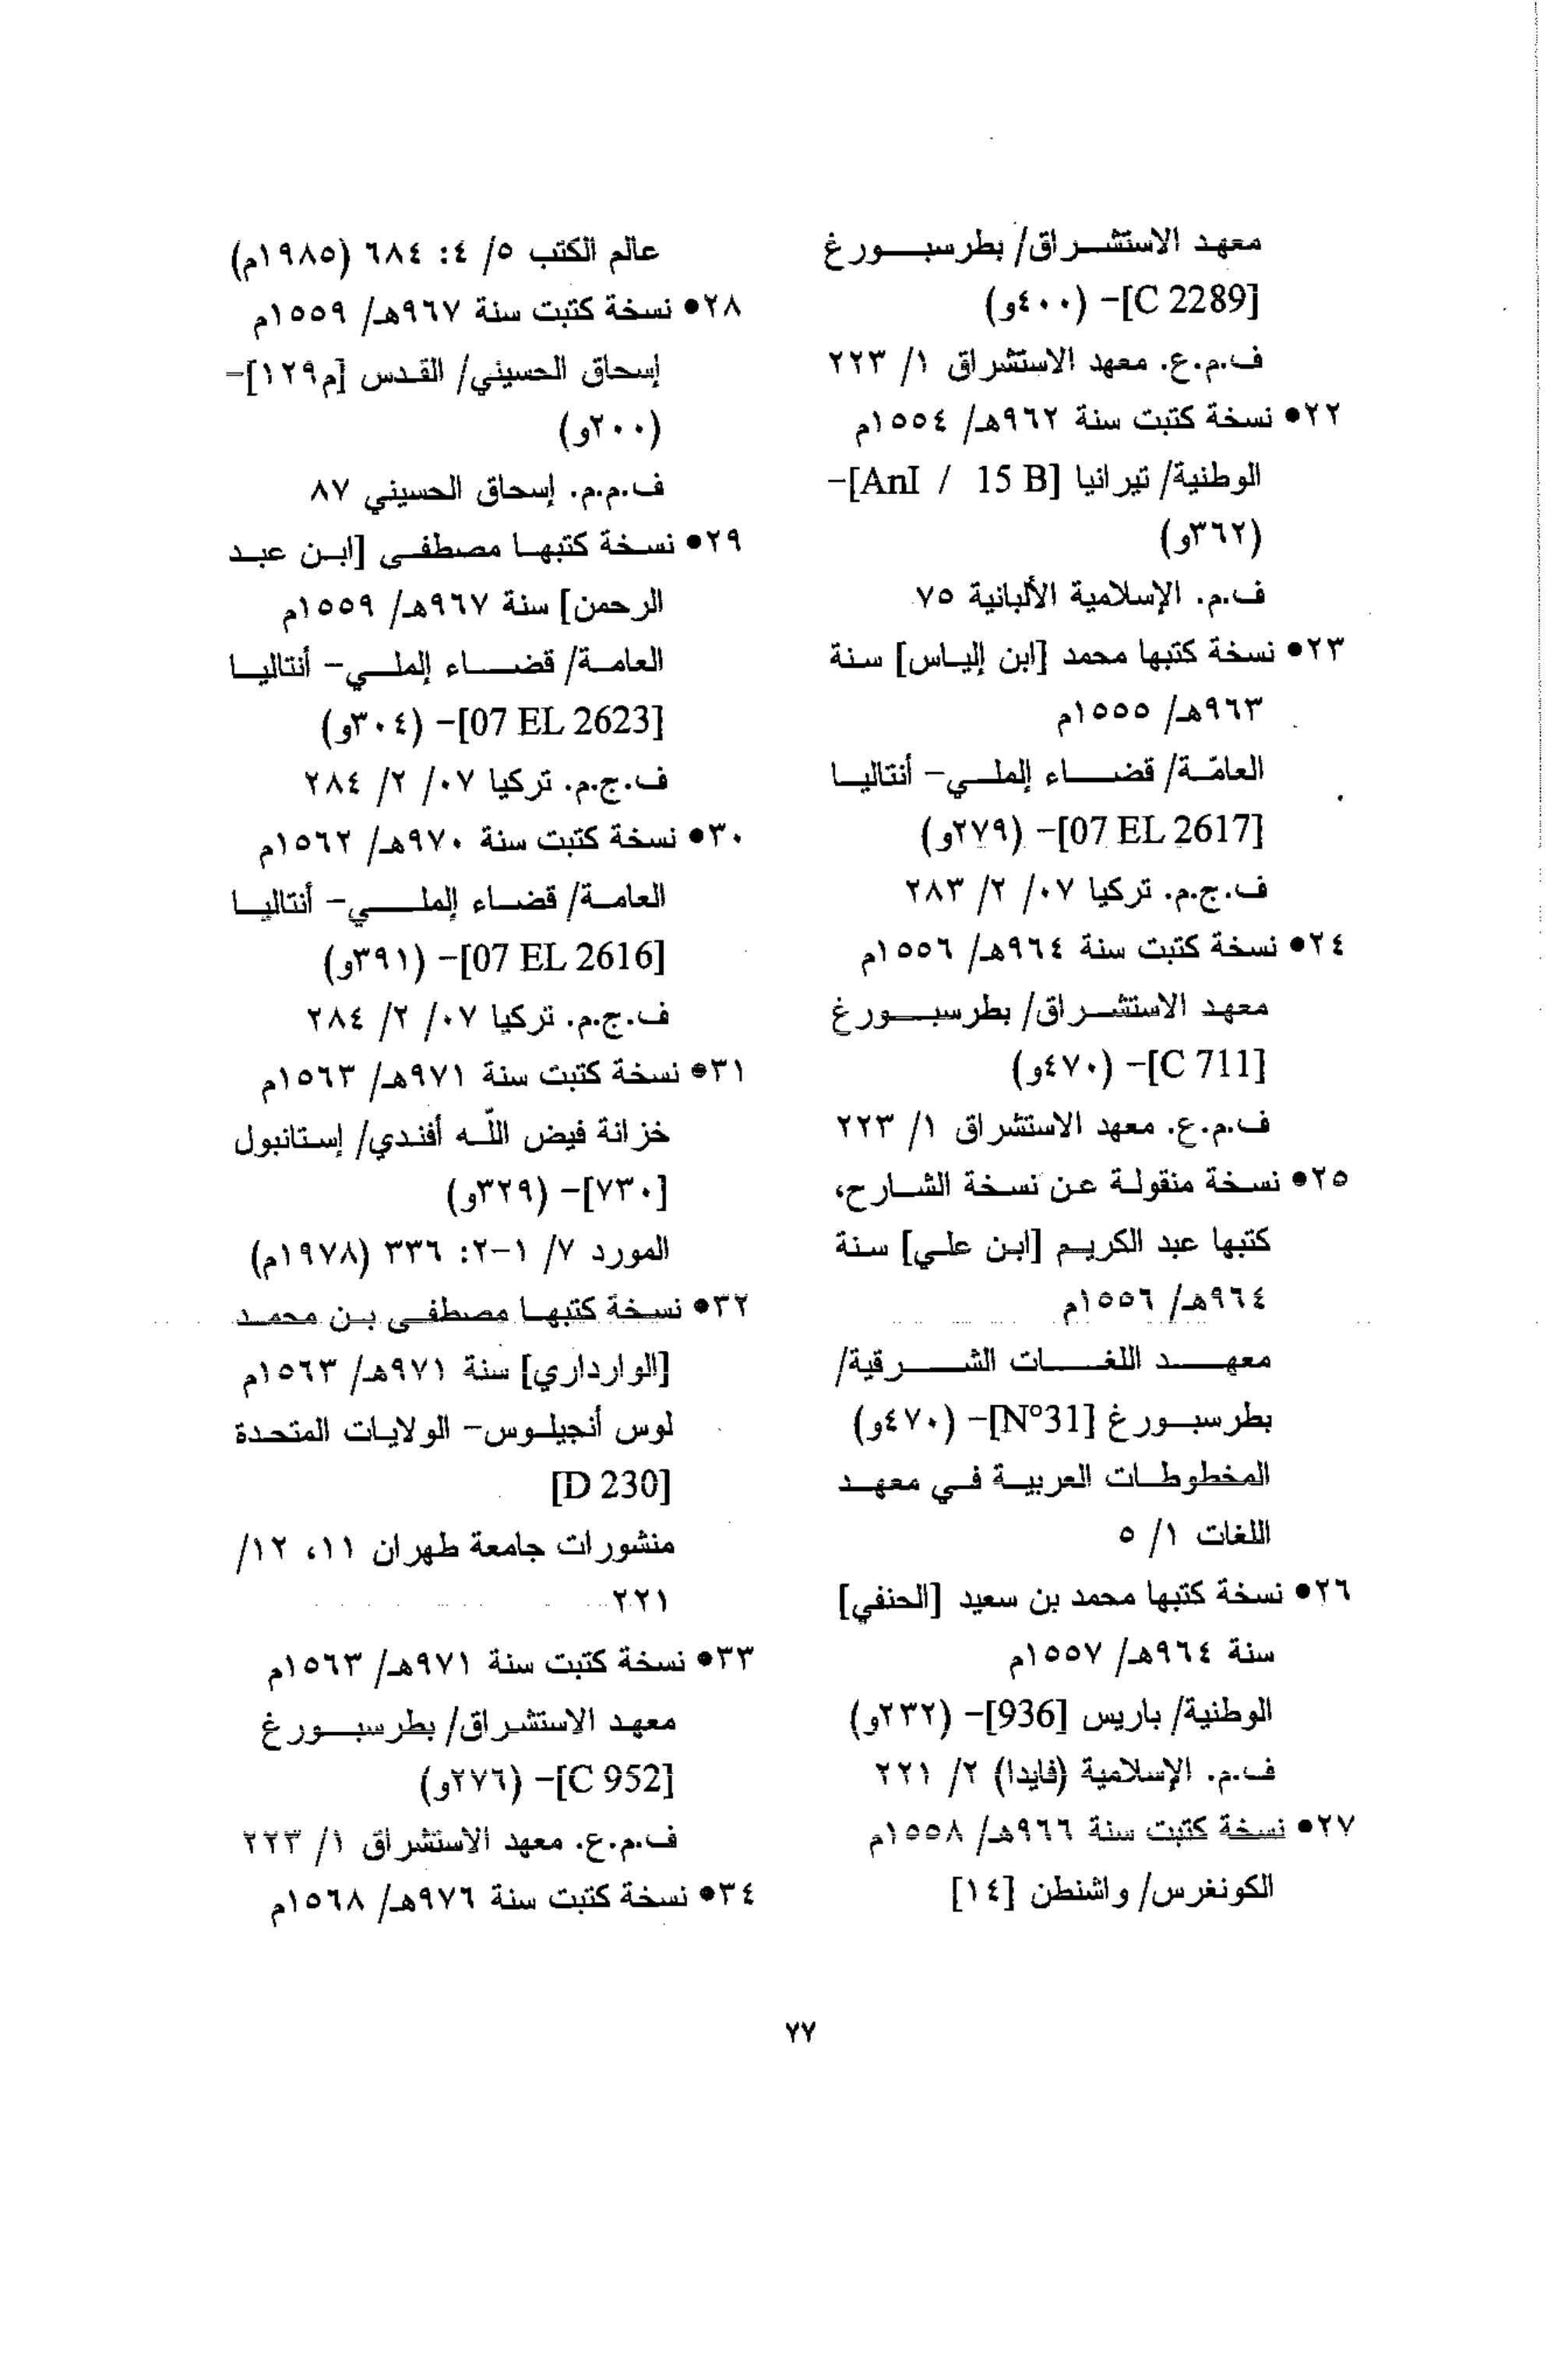 معهد الاستشراق/ بطرسبورغ
[C 2289]- (٤٠٠و)
ف.م.ع. معهد الاستشراق ١/ ٢٢٣
٢٢● نسخة كتبت سنة ٩٦٢هـ/ ١٥٥٤م
الوطنية/ تيرانيا [AnI / 15 B]-
(٣٦٢و)
ف.م. الإسلامية الألبانية ٧٥
٢٣● نسخة كتبها محمد [ابن إلياس] سنة
٩٦٣هـ/ ١٥٥٥م
العامّة/ قضاء إلملي- أنتاليا
[07 EL 2617]- (٢٧٩و)
ف.ج.م. تركيا ٠٧/ ٢/ ٢٨٣
٢٤● نسخة كتبت سنة ٩٦٤هـ/ ١٥٥٦م
معهد الاستشراق/ بطرسبورغ
[C 711]- (٤٧٠و)
ف.م.ع. معهد الاستشراق ١/ ٢٢٣
٢٥● نسخة منقولة عن نسخة الشارح،
كتبها عبد الكريم [ابن علي] سنة
٩٦٤هـ/ ١٥٥٦م
معهد اللغات الشرقية/
بطرسبورغ [N°31]- (٤٧٠و)
المخطوطات العربية في معهد
اللغات ١/ ٥
٢٦● نسخة كتبها محمد بن سعيد [الحنفي]
سنة ٩٦٤هـ/ ١٥٥٧م
الوطنية/ باريس [936]- (٢٣٢و)
ف.م. الإسلامية (فايدا) ٢/ ٢٢١
٢٧● نسخة كتبت سنة ٩٦٦هـ/ ١٥٥٨م
الكونغرس/ واشنطن [١٤]
عالم الكتب ٥/ ٤: ٦٨٤ (١٩٨٥م)
٢٨● نسخة كتبت سنة ٩٦٧هـ/ ١٥٥٩م
إسحاق الحسيني/ القدس [م١٢٩]-
(٢٠٠و)
ف.م.م. إسحاق الحسيني ٨٧
٢٩● نسخة كتبها مصطفى [ابن عبد
الرحمن] سنة ٩٦٧هـ/ ١٥٥٩م
العامة/ قضاء إلملي- أنتاليا
[07 EL 2623]- (٣٠٤و)
ف.ج.م. تركيا ٠٧/ ٢/ ٢٨٤
٣٠● نسخة كتبت سنة ٩٧٠هـ/ ١٥٦٢م
العامة/ قضاء إلملي- أنتاليا
[07 EL 2616]- (٣٩١و)
ف.ج.م. تركيا ٠٧/ ٢/ ٢٨٤
٣١● نسخة كتبت سنة ٩٧١هـ/ ١٥٦٣م
خزانة فيض اللّه أفندي/ إستانبول
[٧٣٠]- (٣٢٩و)
المورد ٧/ ١-٢: ٣٣٦ (١٩٧٨م)
٣٢● نسخة كتبها مصطفى بن محمد
[الوارداري] سنة ٩٧١هـ/ ١٥٦٣م
لوس أنجيلوس- الولايات المتحدة
[D 230]
منشورات جامعة طهران ١١، ١٢/
٢٢١
٣٣● نسخة كتبت سنة ٩٧١هـ/ ١٥٦٣م
معهد الاستشراق/ بطرسبورغ
[C 952]- (٢٧٦و)
ف.م.ع. معهد الاستشراق ١/ ٢٢٣
٣٤● نسخة كتبت سنة ٩٧٦هـ/ ١٥٦٨م
٧٧